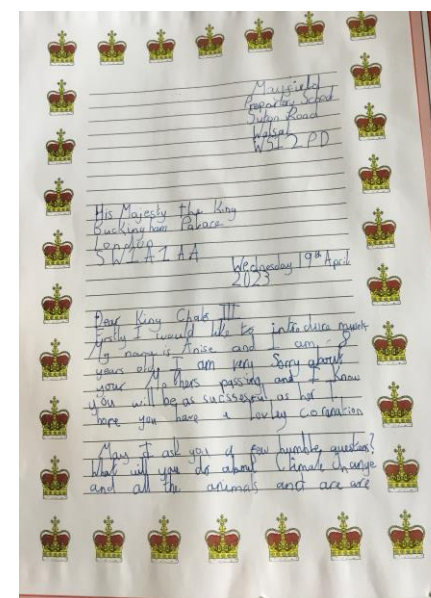 Mayfield
Preparatory School
Sutton Road
Walsall
WS1 2PD
His Majesty the King
Buckingham Palace
London
SW1A 1AA
Wednesday 19th April
2023
Dear King Chals III
Firstly I would like to introduce myself
My name is Anise and I am 8
years old. I am very Sorry about
your Mothers passing and I Know
you will be as sucssesful as her I
hope you have a lovley Coronation
May I ask you a few humble questions?
What will you do about Climate change
and all the animals and are are